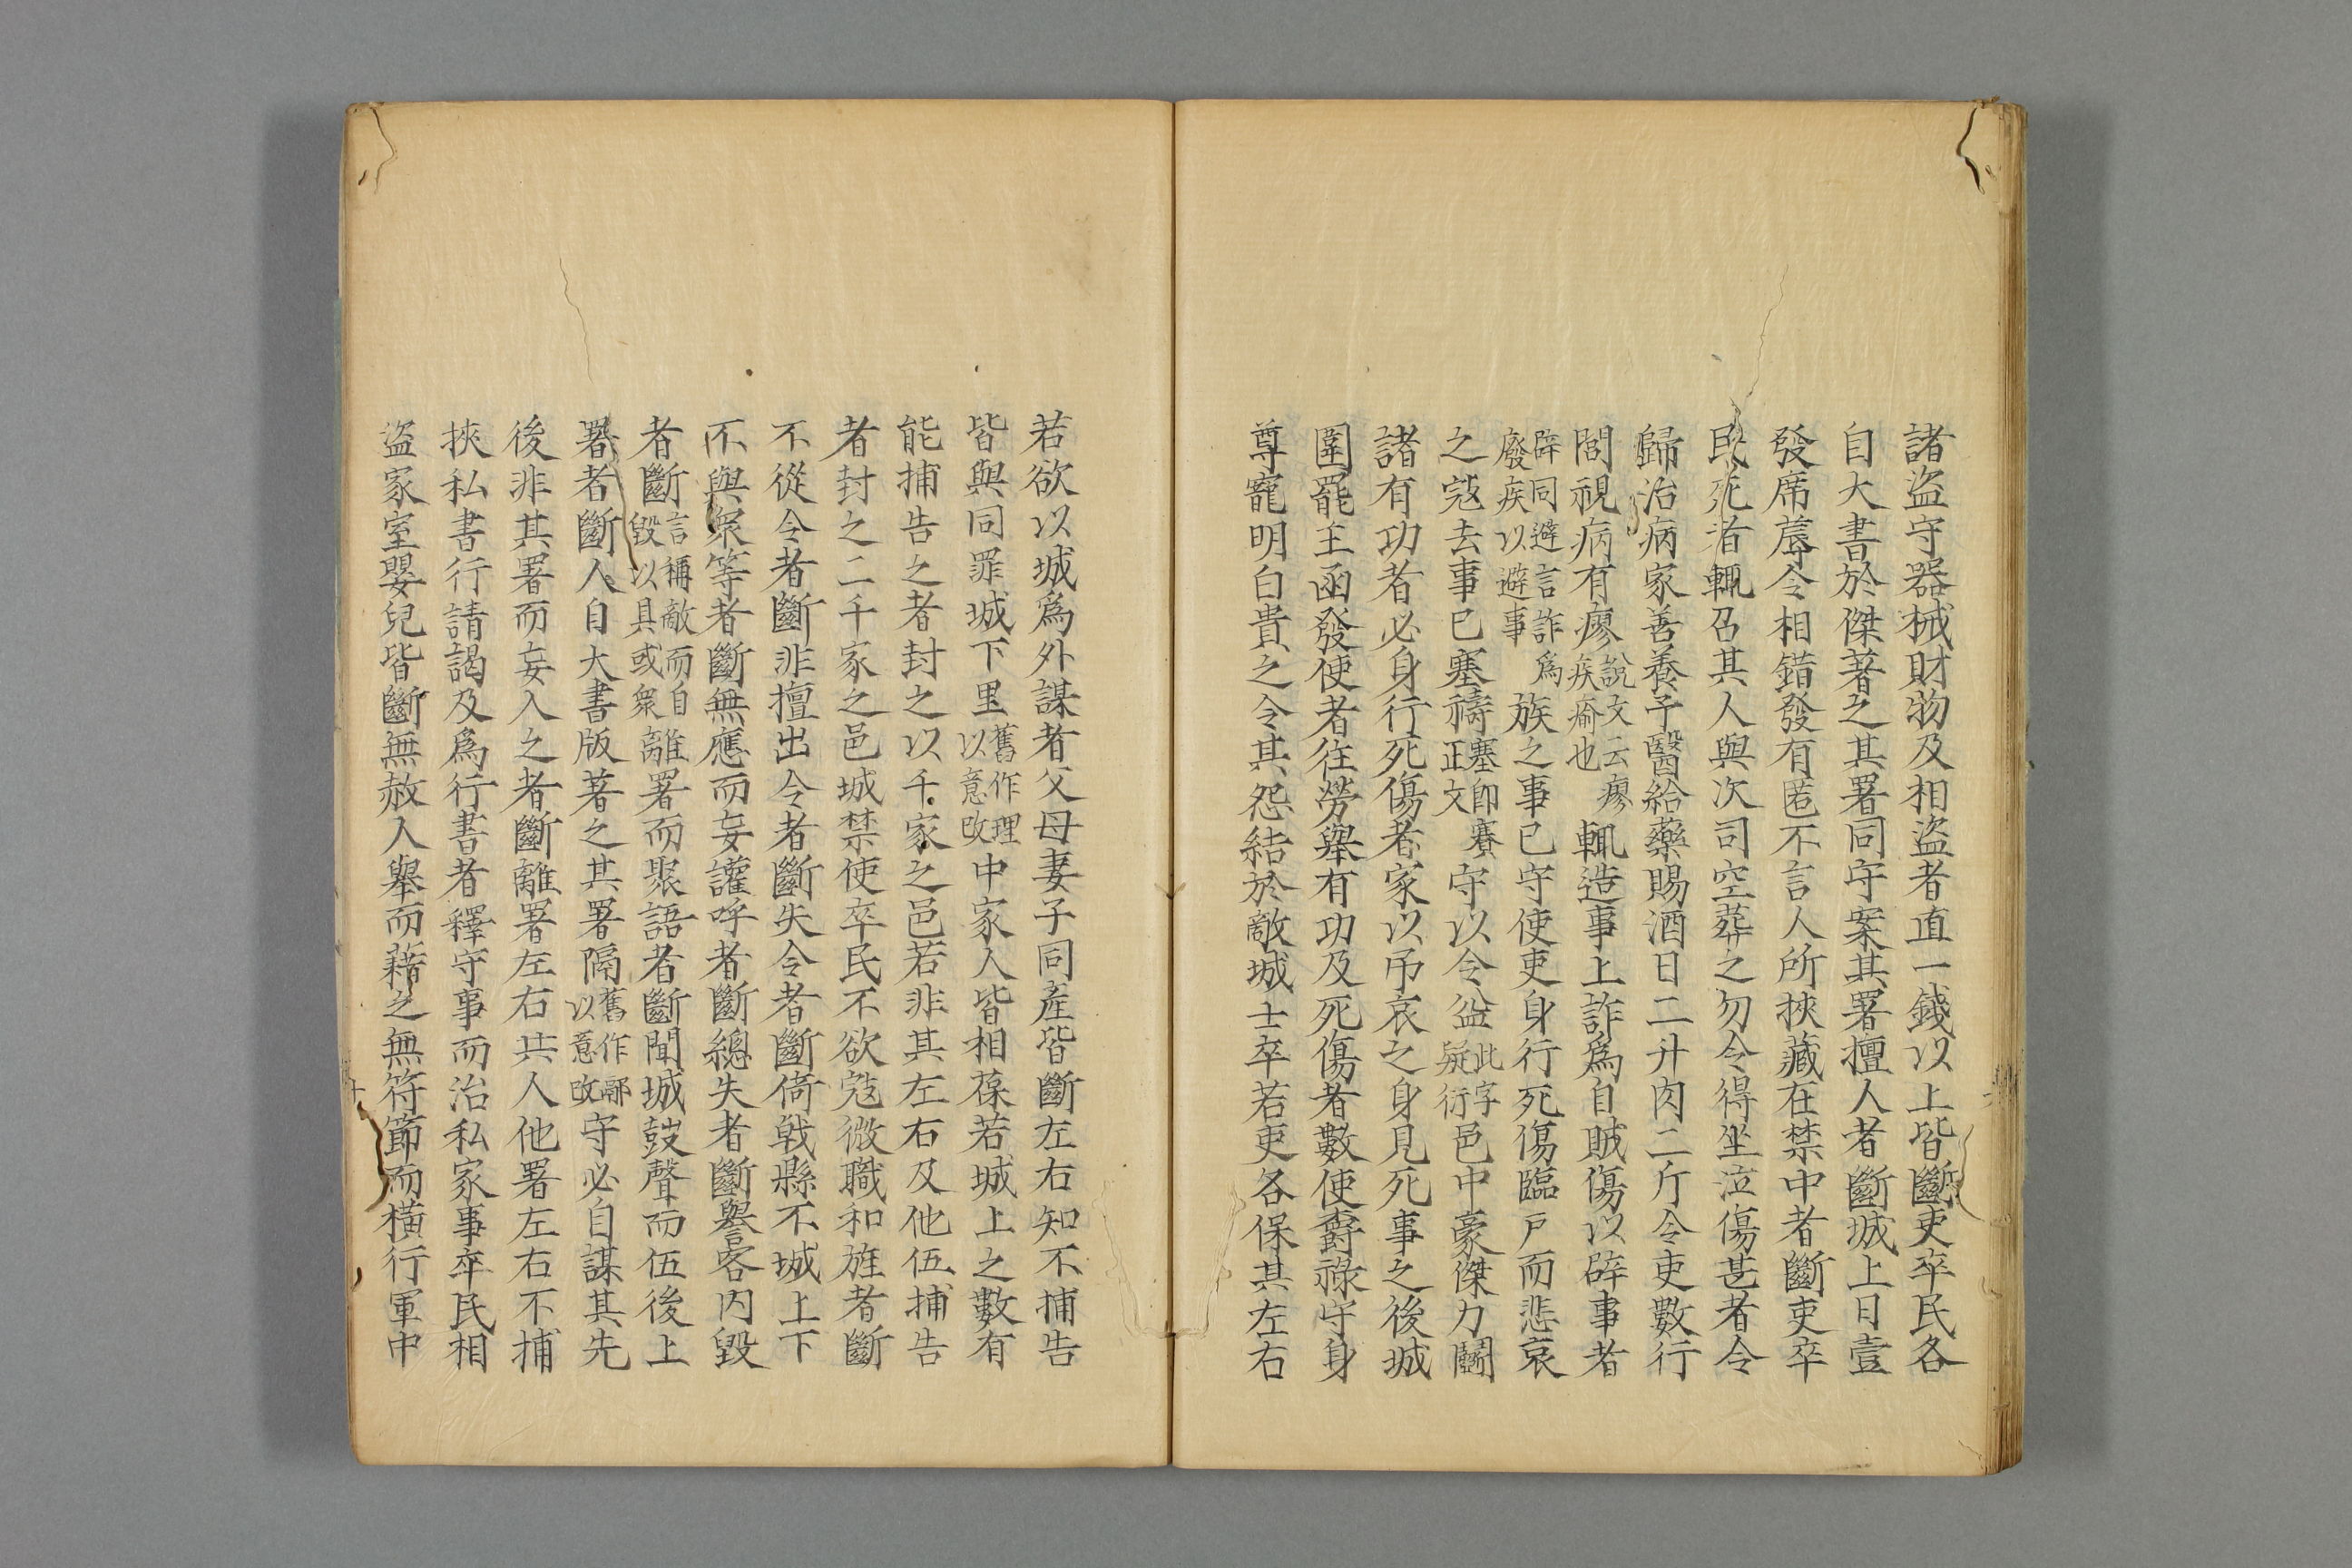 諸盜守器械財物及相盜者直一錢以上皆斷吏卒民各
自大書於傑著之其署同守案其署擅人者斷城上日壹
發席蓐令相錯發有匿不言人所挾藏在禁中者斷吏卒
民死者輒召其人與次司空葬之勿令得坐泣傷甚者令
歸治病家善養予醫給藥賜酒日二升肉二斤令吏數行
閭視病有廖說文云廖疾瘉也輒造事上詐爲自賊傷以辟事者
辟同避言詐爲廢疾以避事族之事已守使吏身行死傷臨戶而悲哀
之寇去事已塞禱塞即賽正文守以令益此字疑衍邑中豪傑力鬭
諸有功者必身行死傷者家以吊哀之身見死事之後城
圍罷主函發使者往勞舉有功及死傷者數使爵祿守身
尊寵明白貴之令其怨結於敵城士卒若吏各保其左右
若欲以城爲外謀者父母妻子同產皆斷左右知不捕告
皆與同罪城下里舊作理以意改中家人皆相葆若城上之數有
能捕告之者封之以千家之邑若非其左右及他伍捕告
者封之二千家之邑城禁使卒民不欲寇微職和旌者斷
不從令者斷非擅出令者斷失令者斷倚戟縣不城上下
不與衆等者斷無應而妄讙呼者斷總失者斷譽客內毀
者斷言稱敵而自毀以具或衆離署而聚語者斷聞城鼓聲而伍後上
署者斷人自大書版著之其署隔舊作鄏以意改守必自謀其先
後非其署而妄入之者斷離署左右共人他署左右不捕
挾私書行請謁及爲行書者釋守事而治私家事卒民相
盜家室嬰兒皆斷無赦人舉而藉之無符節而橫行軍中